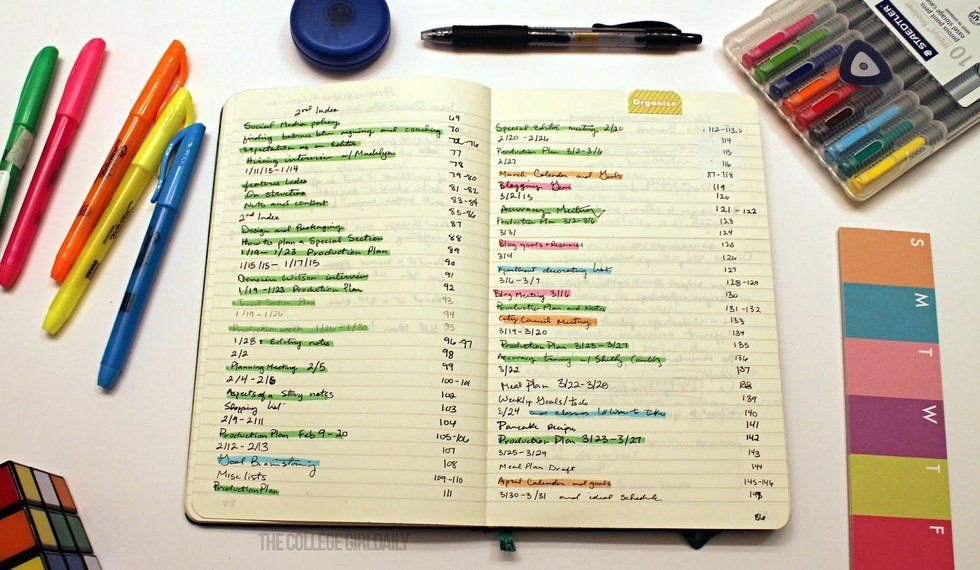 2nd Index
Social Media policy 69
finding balance btw mgning and coaching 70
expectation as an Editor 71-76
Hiring interview w/ Madalyn 77
1/11/15-1/14 78
features ledes 79-80
On structure 81-82
Nuts and content 83-84
2nd Index 85-86
Design and Packaging 87
How to plan a Special Section 88
1/19-1/23 Production Plan 89
1/15/15-1/17/15 90
Demario Wilson interview 91
1/19-1/23 Production Plan 92
Plan 93
1/19-1/26 94
Production week 1/26-1/30 95
1/28 + Editing notes 96-97
2/2 98
Planning Meeting 2/5 99
2/4-2/6 100-101
Aspects of a Story notes 102
Shopping List 103
2/9-2/11 104
Production Plan Feb 9-20 105-106
2/12-2/13 107
Goal Brainstorming 108
Misc lists 109-110
Production Plan 111
Organize
Special Editor meeting 2/20 112-113
2/20-2/26 114
Production Plan 3/2-3/6 115
2/27 116
March Calendar and Goals 117-118
Blogging 119
3/2/15 120
Accuracy Meeting 121-122
Production Plan 3/2-3/6 123
3/31 124
Blog goals + Resources 125
3/4 126
Apartment decorating list 127
3/6-3/7 128-129
Blog Meeting 3/16 130
Production Plan and Notes 131-132
City Council Meeting 133
3/19-3/20 134
Production Plan 3/23-3/27 135
Accuracy training w/ Shelby 136
3/22 137
Meal Plan 3/22-3/28 138
Weekly Goals/to do 139
3/24 and classes to take 140
Pancake recipe 141
Production Plan 3/23-3/27 142
3/25-3/29 143
Meal Plan Draft 144
April Calendar and goals 145-146
3/30-3/31 and ideal schedule
STAEDTLER
10
triplus fineliner
S
M
T
W
T
F
THE COLLEGE GIRL DAILY